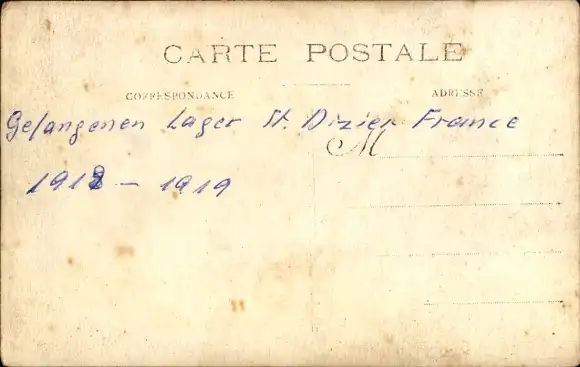 CARTE POSTALE
CORRESPONDANCE ADRESSE
Gefangenen Lager St. Dizier France
M
1918 - 1919